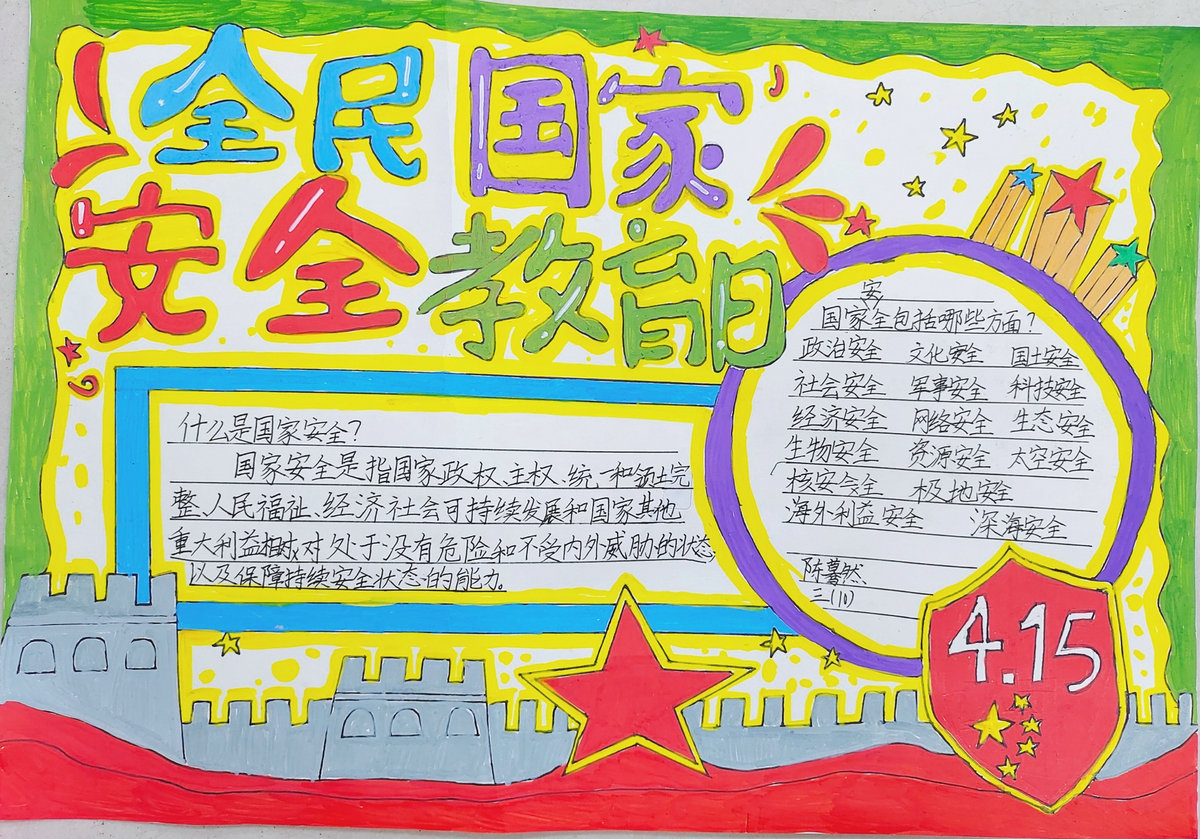 全民国家
安全教育日
国家安全包括哪些方面?
政治安全 文化安全 国土安全
社会安全 军事安全 科技安全
经济安全 网络安全 生态安全
生物安全 资源安全 太空安全
核安全 极地安全
海外利益安全 深海安全
三(10)
什么是国家安全?
国家安全是指国家政权、主权、统一和领土完
整、人民福祉、经济社会可持续发展和国家其他
重大利益相对处于没有危险和不受内外威胁的状态
以及保障持续安全状态的能力。
4.15